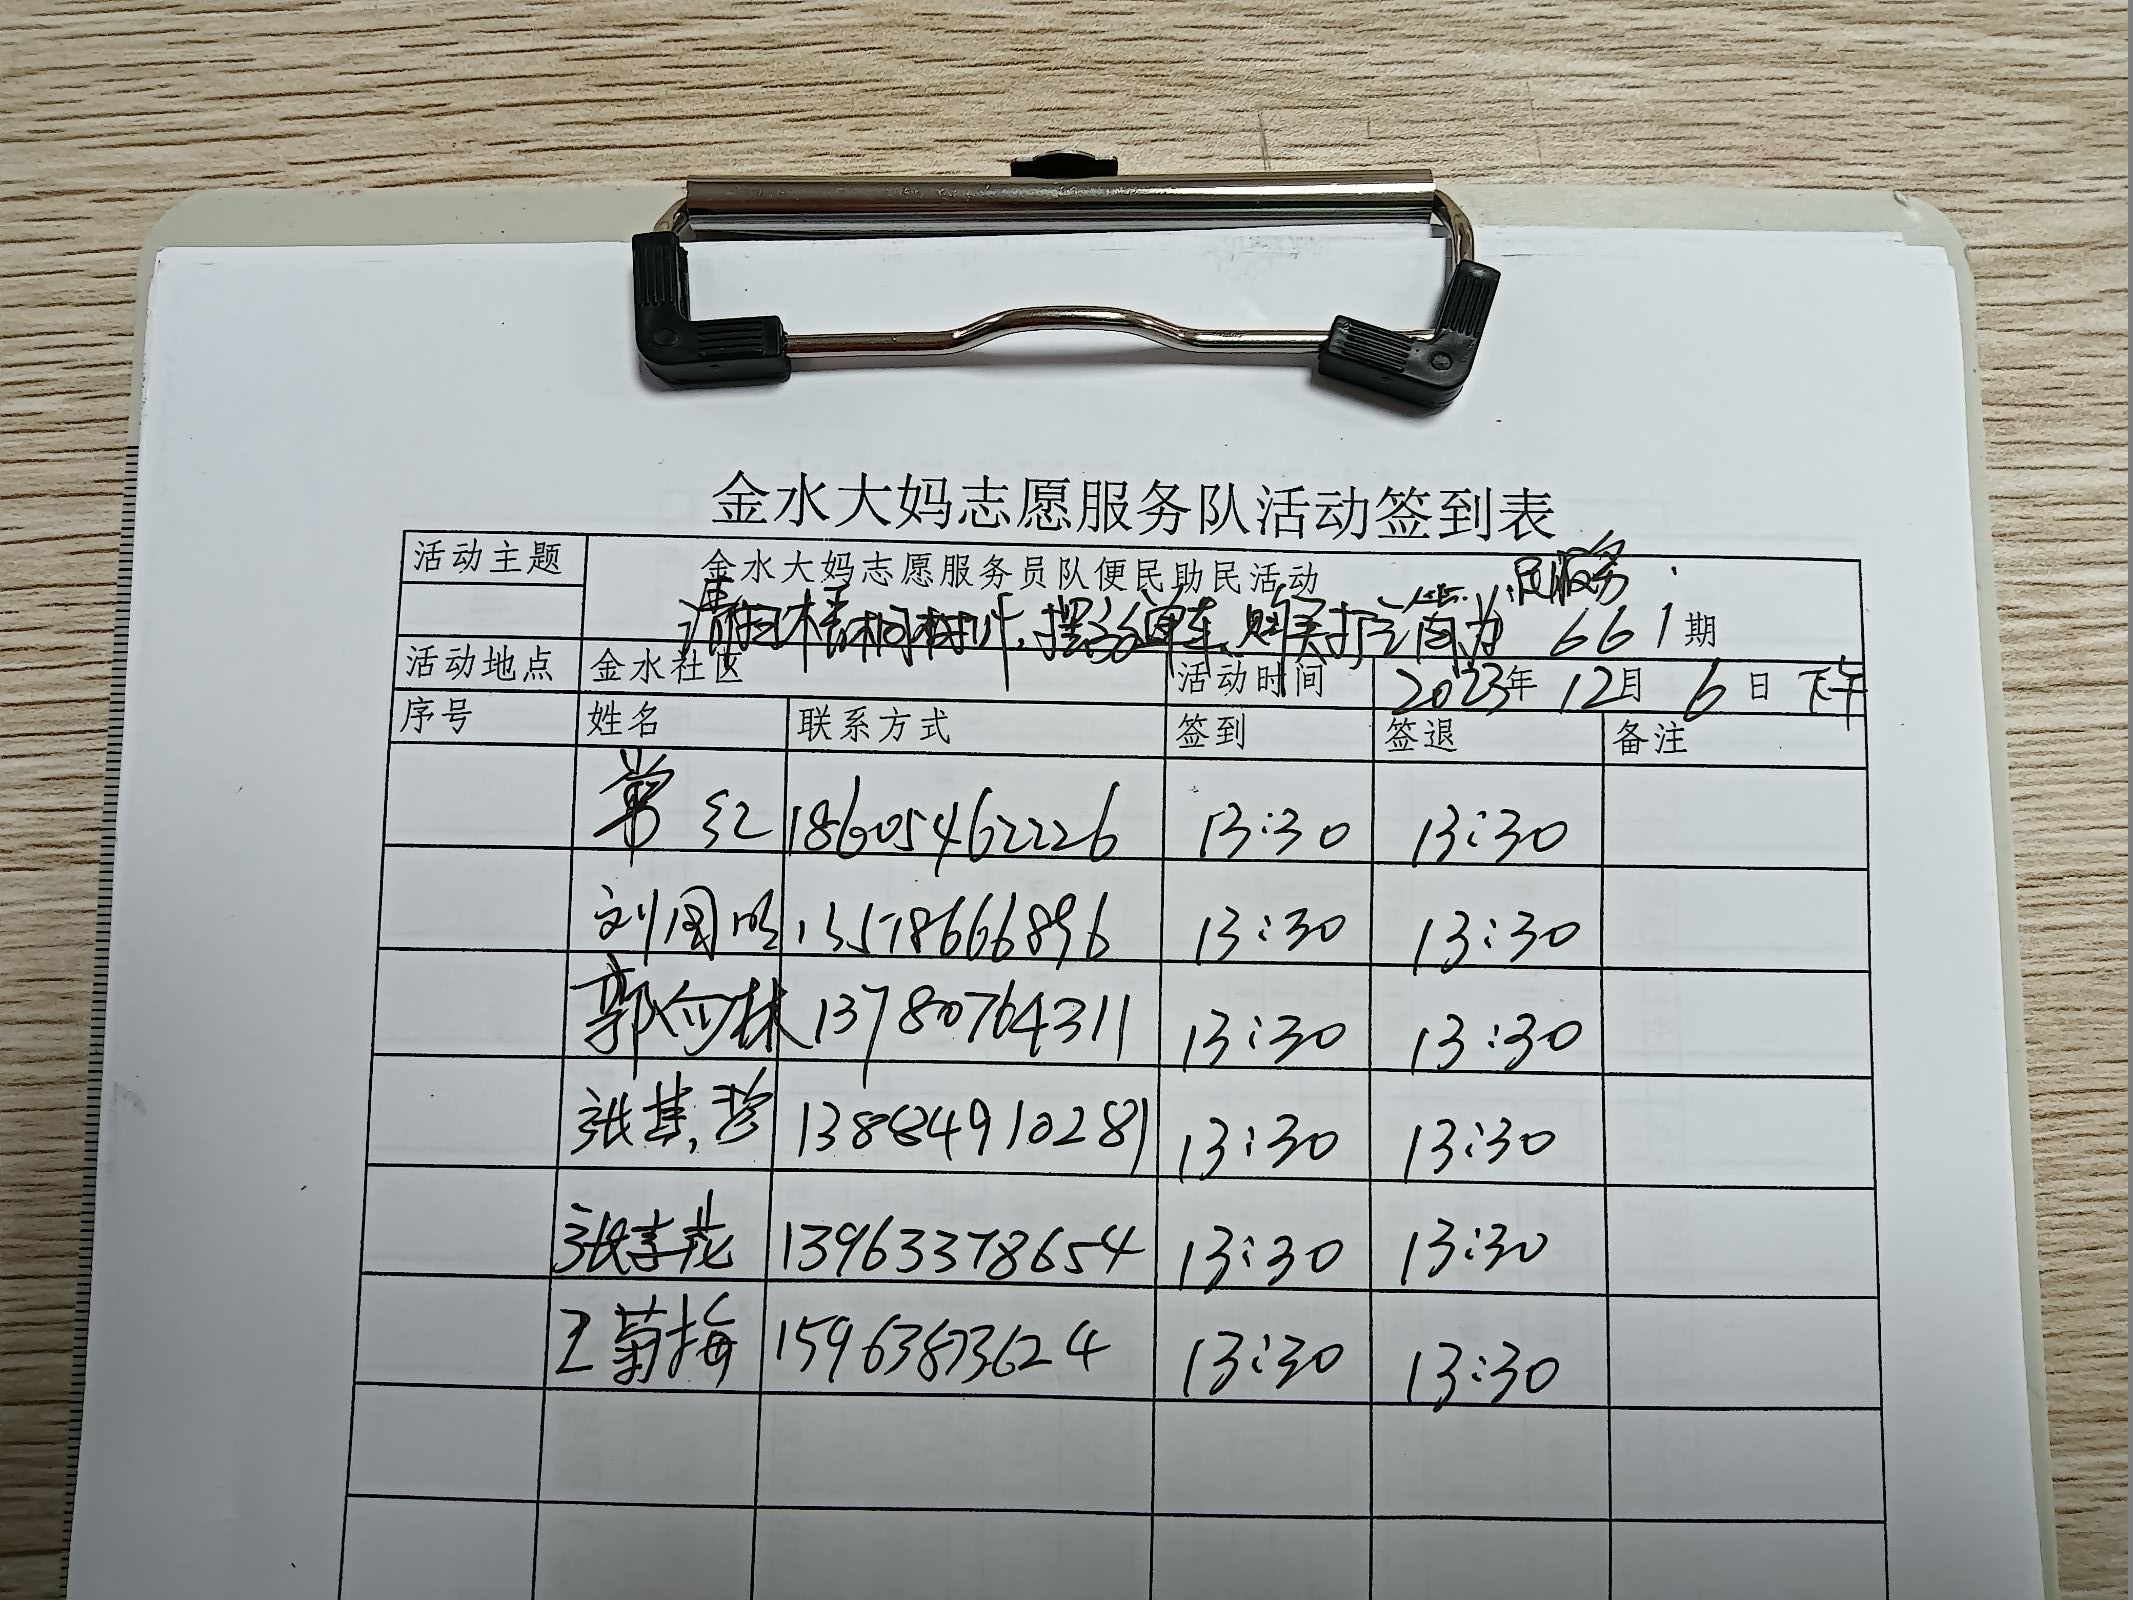 金水大妈志愿服务队活动签到表
活动主题 金水大妈志愿服务员队便民助民活动
民服务
661期
活动地点 金水社区 活动时间 2023年 12月 6日 下午
序号 姓名 联系方式 签到 签退 备注
红 18605462226 13:30 13:30
刘国明 13578666896 13:30 13:30
郭应林 13780764311 13:30 13:30
张其 13884910281 13:30 13:30
张 花 13963378654 13:30 13:30
王菊梅 15963873624 13:30 13:30